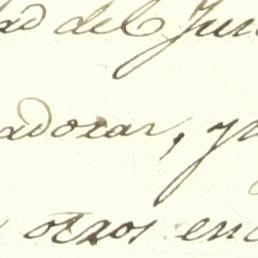 ad del Jur
adorar, y
otros en